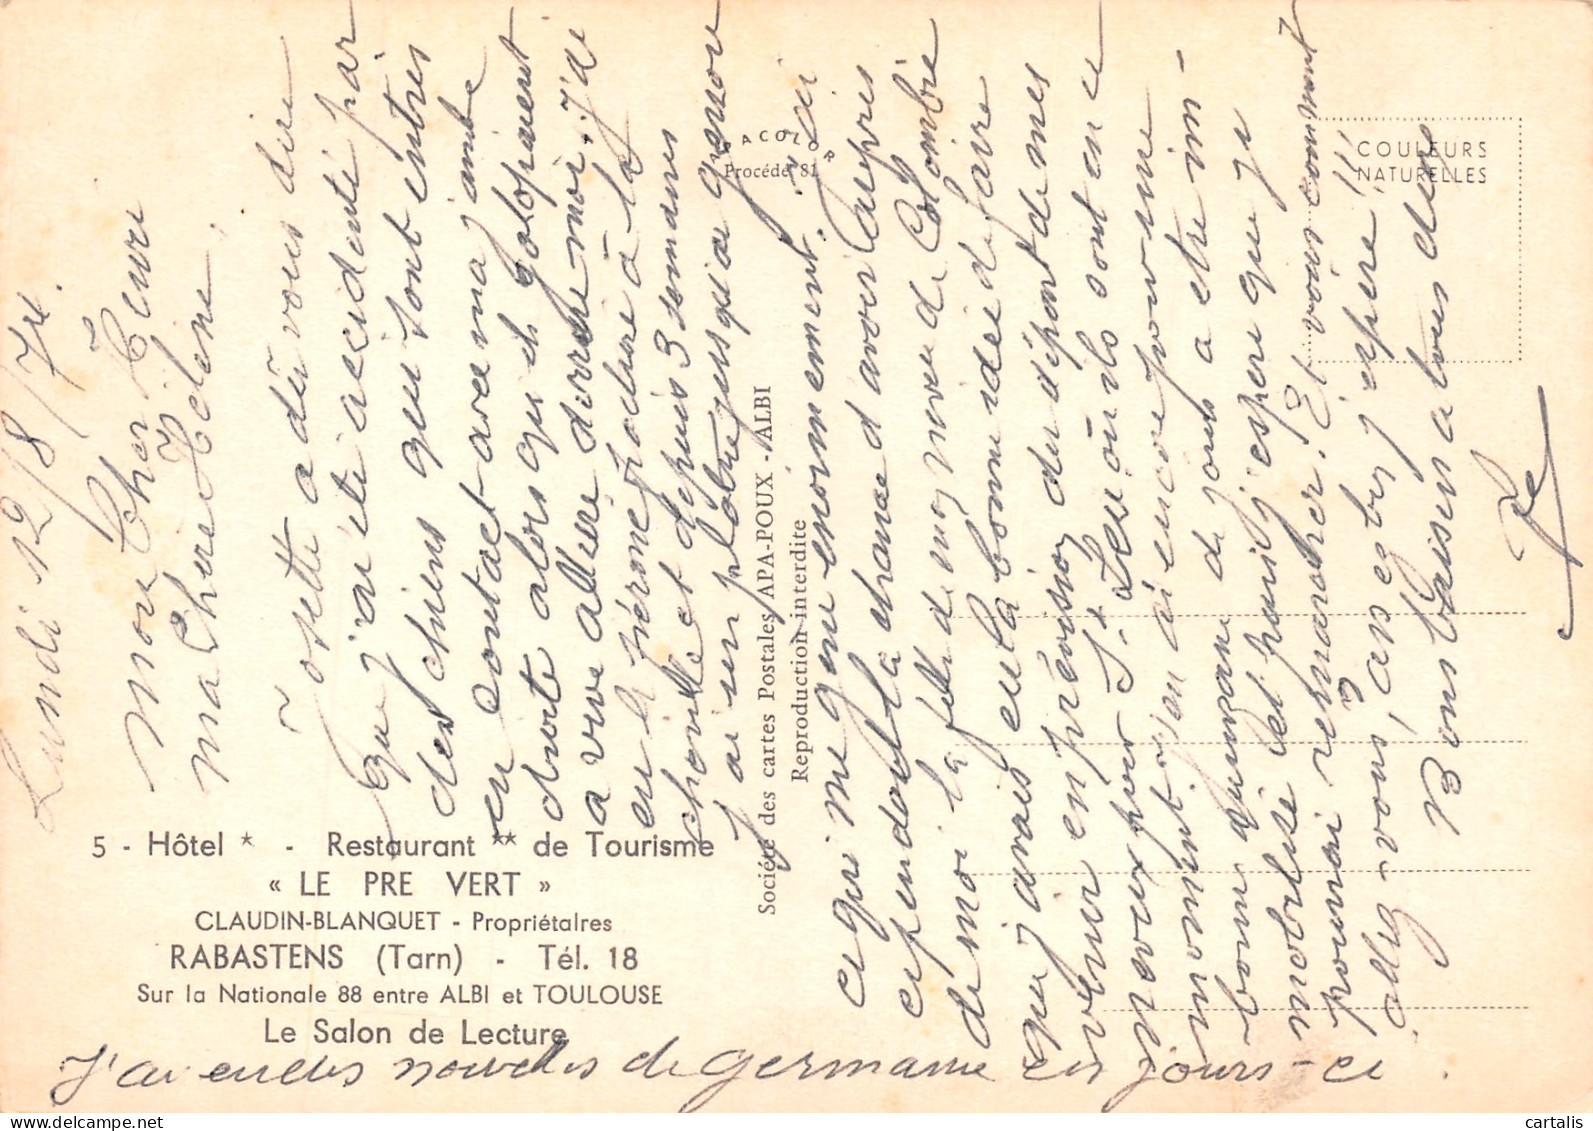 Lundi 12/8/74.
Mon Cher Pierre
ma Chère Hélène,
Josette a dû vous dire
que j'ai été accidenté par
des chiens qui sont entrés
en contact avec ma jambe
droite alors qu'ils galopaient
a vive allure derrière moi. J'ai
eu le péroné fracturé à la
cheville et depuis 3 semaines
J'ai un plâtre jusqu'au genou
ce qui me gêne énormément. J'ai
cependant la chance d'avoir auprès
de moi la fille de mon neveu de Colombie
que j'avais eu la bonne idée de faire
venir en prévision du départ de mes
neveux pour St Leu où ils sont en ce
moment. J'en ai encore pour une
bonne quinzaine de jours a être im-
mobilisé et puis j'espère que je
pourrai remarcher. Et vous comment
allez-vous, assez bien j'espère !!
Bons baisers a tous deux
J'ai eu des nouvelles de Germaine ces jours-ci.
5 - Hôtel * - Restaurant ** de Tourisme
« LE PRE VERT »
CLAUDIN-BLANQUET - Propriétaires
RABASTENS (Tarn) - Tél. 18
Sur la Nationale 88 entre ALBI et TOULOUSE
Le Salon de Lecture
Société des cartes Postales APA-POUX - ALBI
Reproduction interdite
Procédé 81
COULEURS
NATURELLES
cartalis
delcampe.net